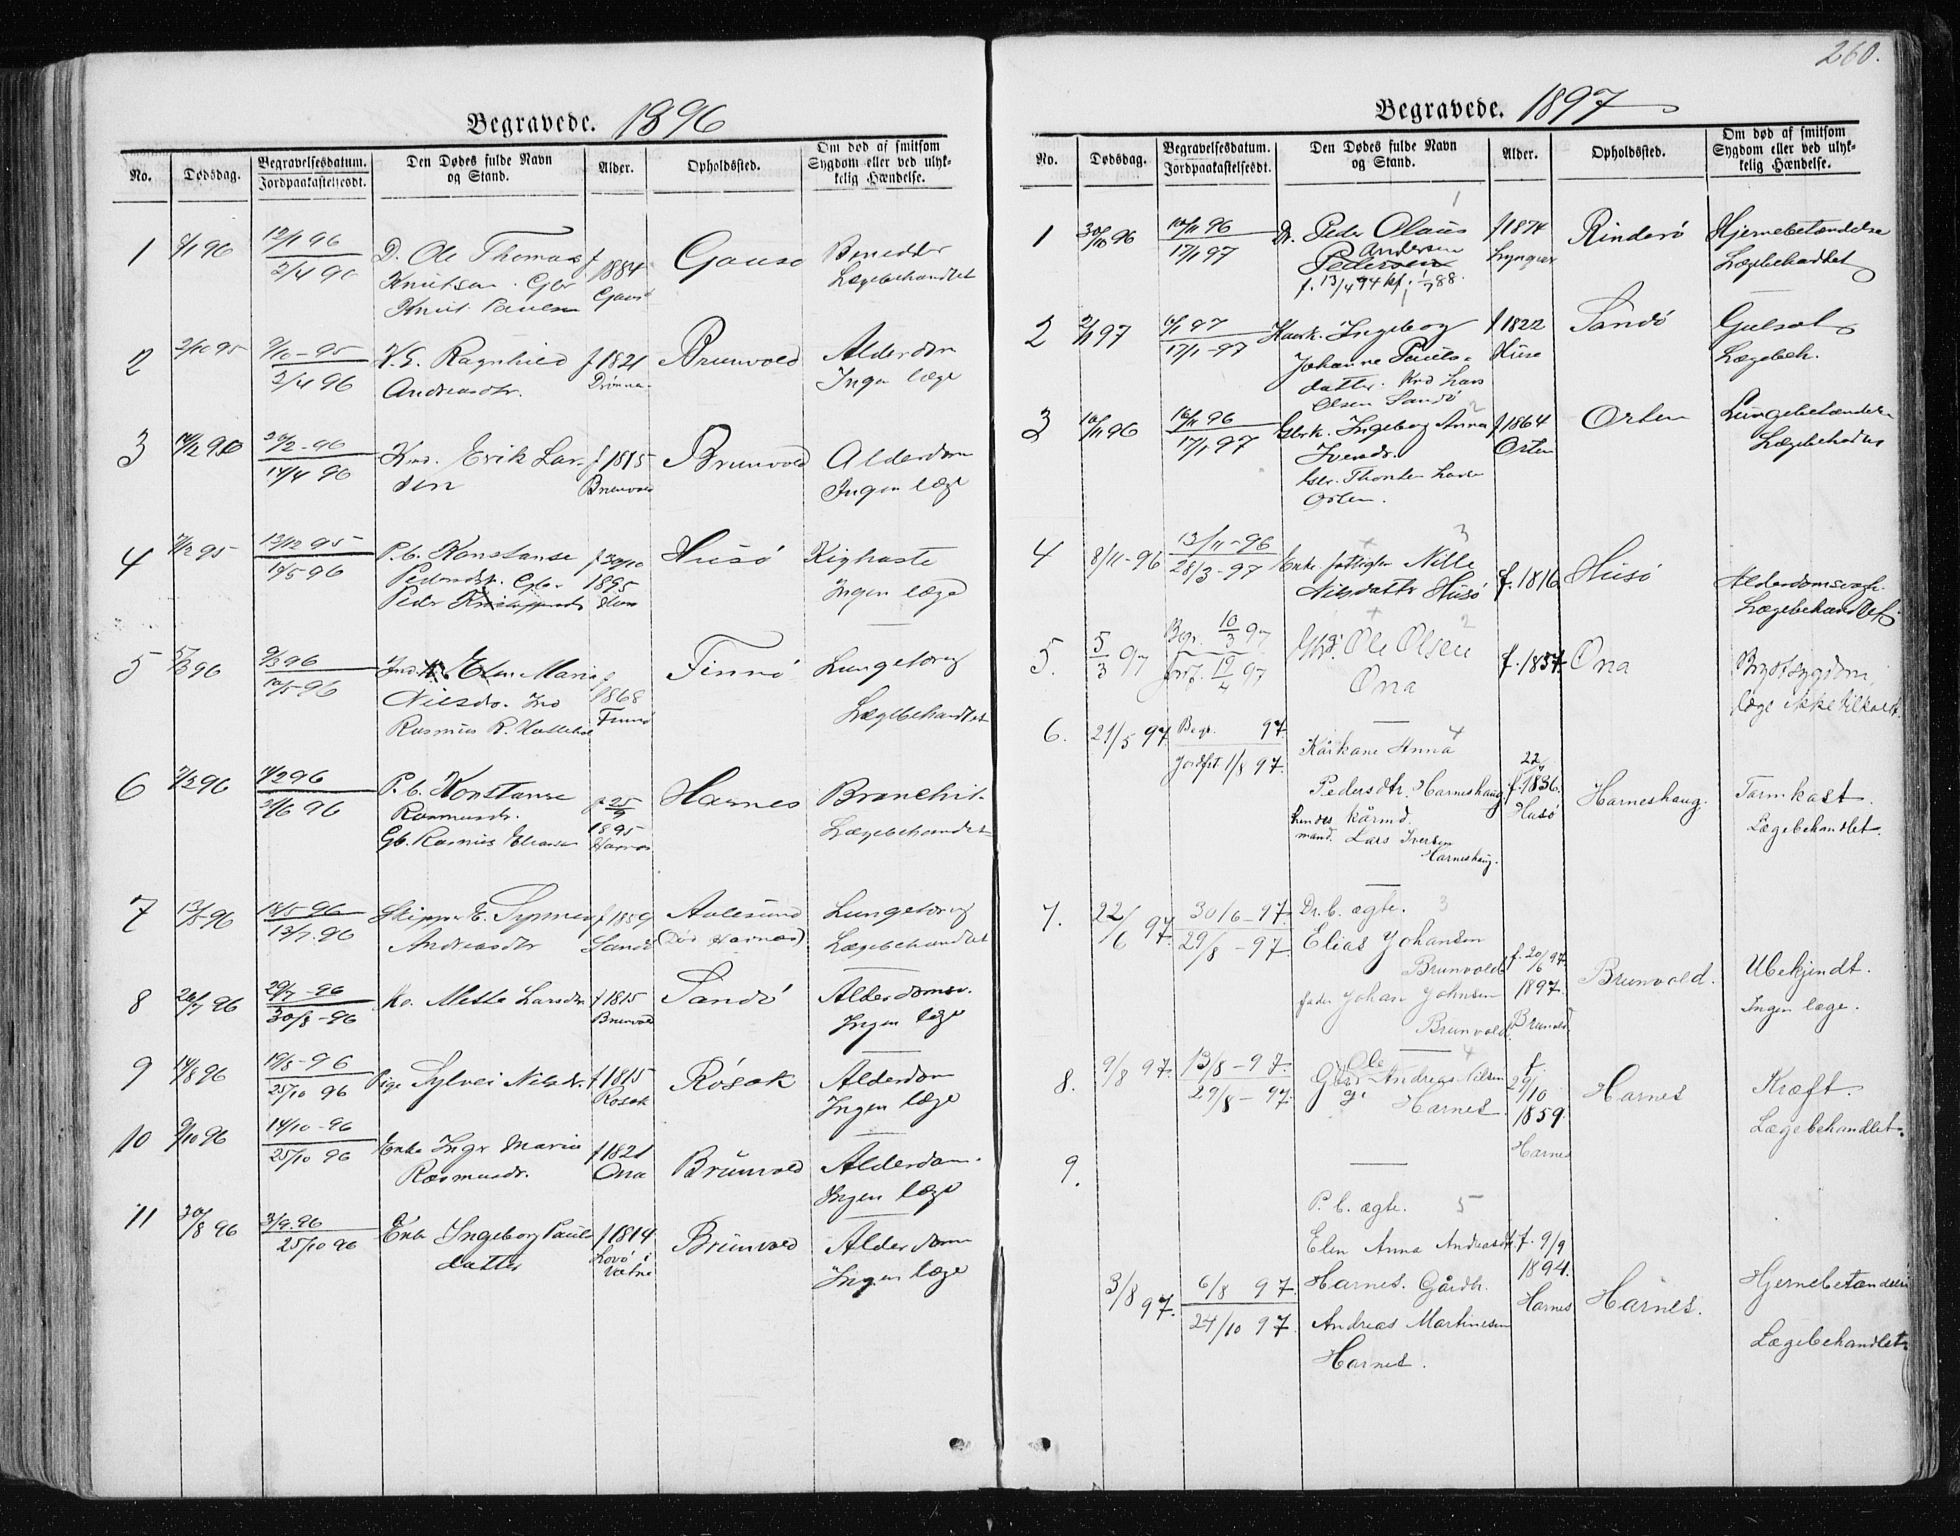 Begravede. 1896
No.
Dødsdag.
Begravelsesdatum.
Jordpaakastelsesdt.
Den Dødes fulde Navn
og Stand.
Alder.
Opholdssted.
Om død af smitsom
Sygdom eller ved ulyk-
kelig Hændelse.
1
12/1 96
D. Ole Thomas
Knutsen. Gbr
Knut Paulsen
f
1884
Lægebehandlet
2
2/10 95
9/10-95
2/4 96
Ragnhild
Andreasdtr.
f 1821
Brunvold
Alderdom
Ingen læge
3
Erik Lar-
sen
f 1815
Brunvold
Brunvold
Alderdom
Ingen læge
4
13/12 95
P.b. Konstanse
Pedersdtr. Gbr.
Peder
f 30/10
1895
Husø
Kighoste
Ingen læge
5
9/3 96
Elen Marie
Nilsdtr. Ind
Rasmus R.
f
1868
Finnø
Finnø
Lungetæring
Lægebehandlet
6
P.b. Konstanse
Rasmusdr.
Gb. Rasmus
f 25/9
1895
Harnes
Harnes
Bronchit.
Lægebehandlet
7
13/5 96
18/5-96
13/7.96
Skipper E. Synnev
Andreasdtr
f 1859
Sandø
Aalesund
(Død Harnes)
Lungetæring
Lægebehandlet
8
26/7 96
29/7-96
30/8-96
Ko. Mette Larsdtr
f 1815
Brunvold
Sandø
Alderdomsv.
Ingen læge
9
14/8 96
19/8-96
25/10 96
Pige Sylvei Nilsdr.
f 1815
Røsok
Røsok
Alderdom
Ingen læge
10
9/10 96
14/10-96
25/10 96
Enke Inger Marie
Rasmusdr.
f 1821
Ona
Brunvold
Alderdom.
Ingen læge
11
30/8 96
3/9.96
25/10 96
Enke Ingeborg Pauls
datter
f 1814
Lovø i
Vatne
Brunvold
Alderdom
Ingen læge
260.
Begravede. 1897
No.
Dødsdag.
Begravelsesdatum.
Jordpaakastelsesdt.
Den Dødes fulde Navn
og Stand.
Alder.
Opholdssted.
Om død af smitsom
Sygdom eller ved ulyk-
kelig Hændelse.
1
1
30/10 96
17/1 97
Dr. Peder Olaus
Andersen
Pedersen
f. 13/4 74 kf. 1/7 88.
f 1874
Rinderø
Hjernebetændelse
Lægebehandlet
2
2/1 97
6/1 97
17/1-97
Ingeborg
Johanne Pauls-
datter. Lars
Olsen Sandø
f 1822
Husø
Sandø
Gulsot
Lægebeh.
3
2
10/11 96
16/11 96
17/1 97
Gbrk. Ingeborg Anna
Iversdr.
Orten.
f 1864
Orten
Orten
Lungebetændelse
4
3
8/11-96
13/11-96
28/3-97
Enke fattiglem Nille
Nilsdatter Husø
f. 1816
Husø
Alderdomsvagh.
Lægebehandlet.
5.
2
5/3 97
Begr. 10/3 97
Jordf. 19/4 97
Ole Olsen
Ona
f. 1837.
Ona
Brystsygdom,
læge ikke tilkaldt.
6.
4
21/5 97
Begr. 97
Jordfst 1/8 97.
Kårkone Anna
Pedersdtr. Harneshaug
hendes kårmd.
mand. Lars Iversen
Harneshaug.
22/4
f. 1836.
Husø
Harneshaug.
Tarmkast.
Lægebehandlet.
7.
3
22/6 97.
30/6-97.
29/8-97.
Dr.b. ægte.
Elias Johansen
Brunvold
fader Johan Johnsen
Brunvold.
f. 20/6 97.
1897.
Brunvold
Brunvold.
Ubekjendt.
Ingen læge.
8.
4
9/8 97.
13/8-97.
29/8-97.
Ole
Andreas Nilsen
Harnes.
f.
29/10
1859.
Harnes
Harnes
Kræft.
Lægebehandlet.
9.
5
3/8 97.
6/8 97.
24/10 97.
P. b. ægte.
Elen Anna Andreasdt.
Harnes. Gårdbr.
Andreas Martinesen
Harnes.
f. 9/9
1894.
Harnes
Harnes.
Hjernebetændelse
Lægebehandlet.